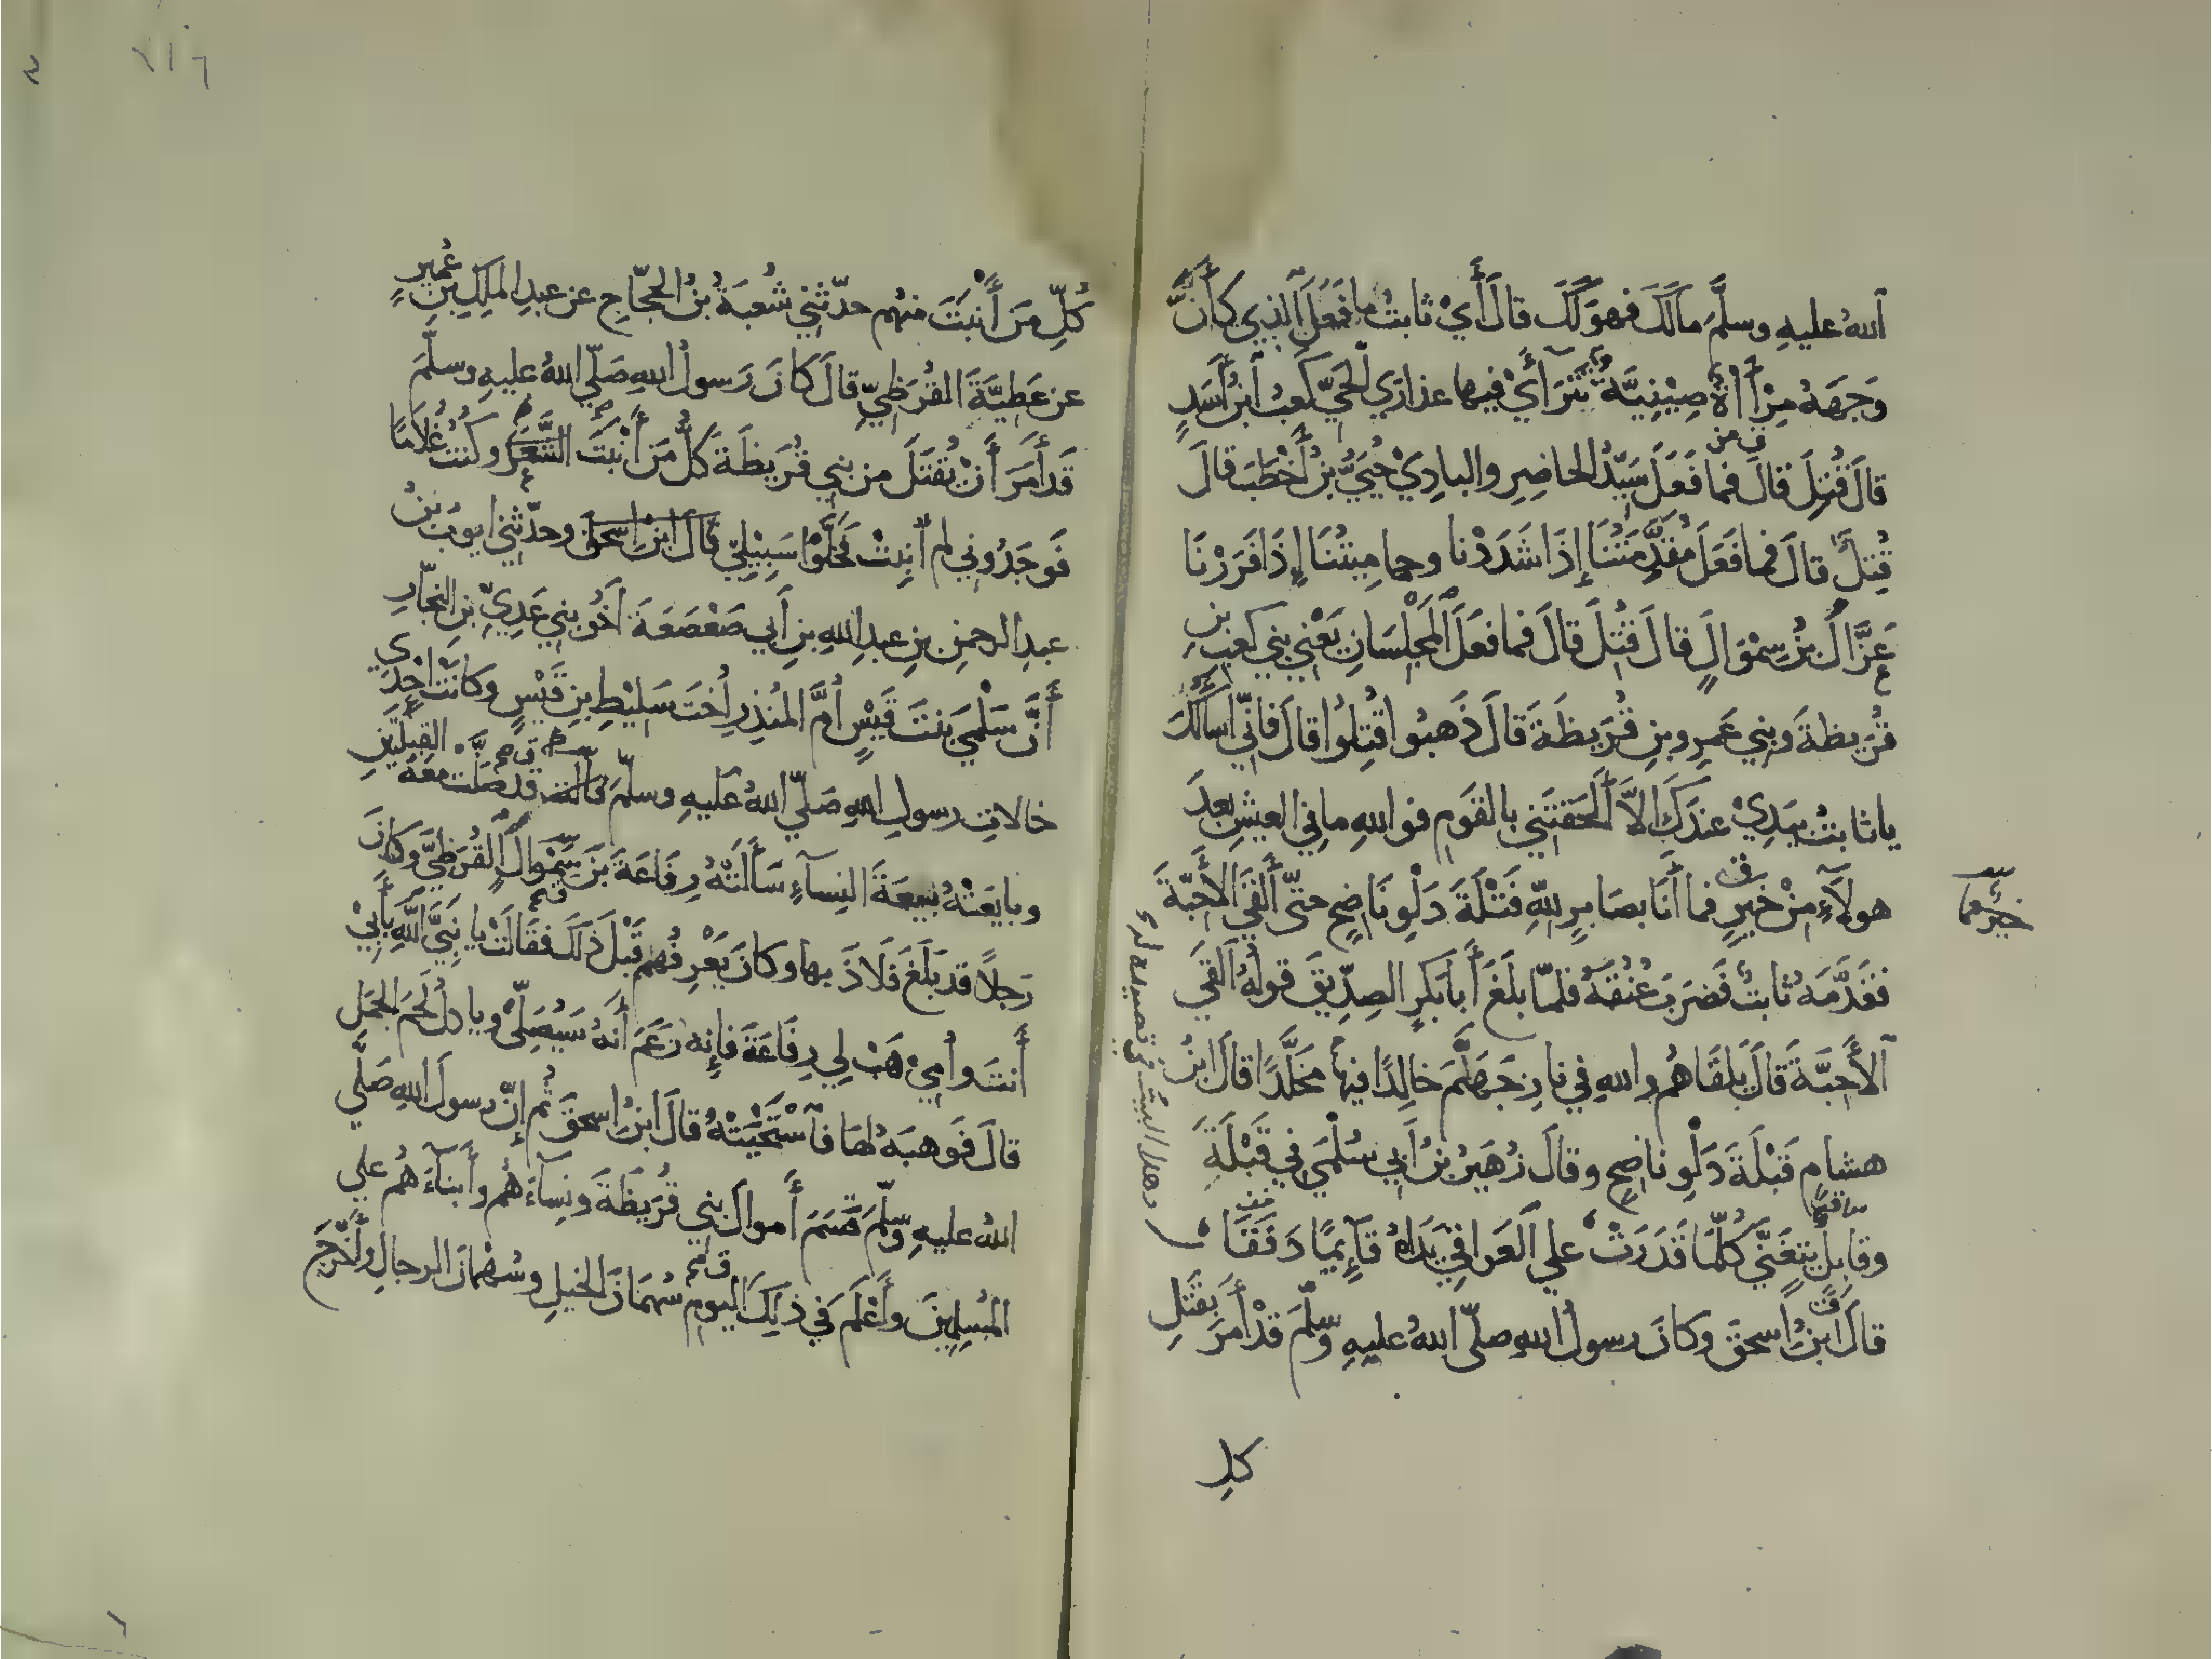 ٱللهُ عليهِ وسلَّمَ مالَكَ فهوَ لَكَ قالَ أَيْ ثابتُ ما فَعَلَ ٱلذِي كأنَّ
وَجهَهُ مِرْآةٌ صِيْنِيَّةٌ يَتَرَاءَىْ فيها عذارَي ٱلحَيِّ كَعبُ ٱبنُ أَسَدٍ
قالَ قُتِلَ قالَ فما فَعَلَ سَيِّدُ الحاضِرِ والبادِيْ حُيَيُّ بنُ أَخْطَبَ قالَ
قُتِلَ قالَ فما فَعَلَ مُقَدِّمَتُنَا إذَا شَدَدْنا وحامِيتُنَا إِذَا فَرَرْنَا
عَزَّالُ بنُ سِمْوَالٍ قالَ قُتِلَ قالَ فما فعَلَ ٱلمَجلِسَانِ يَعْنِي بنِي كعبِ بنِ
قُرَيظَةَ وبنِي عَمرِو بنِ قُرَيظَةَ قالَ ذَهبُوا قُتِلُوا قالَ فَإنِّي أسألُكَ
ياثابتُ بيَدِيْ عندَكَ إلاَّ أَلحَقتَنِي بالقَومِ فوَ اللهِ ما فِي العيشِ بعدَ
هولاَءِ مِنْ خَيرٍ فما أَنَا بصَابرٍ للهِ فَتْلَةَ دَلْوِ نَاضِحٍ حتّى أَلقَى الأَحِبَّةَ
خيرٌ
فقَدَّمَهُ ثابتٌ فضَربَ عُنُقَهُ فلمّا بلَغَ أَبا بَكرٍ الصِدِّيقَ قولُهُ أَلقَي
ٱلأَحِبَّةَ قالَ يَلقَاهُم واللهِ فِي نارِ جَهنَّمَ خالِدًا فيها مُخَلَّدًا قالَ ابنُ
هشامٍ قَبْلَةَ دَلْوِ ناضِحٍ وقالَ زُهَيرُ بنُ أَبِي سُلْمَي فِي قَبْلَةٍ
وقابلٍ يتغَنَّي كُلّمَا قَدَرَتْ علي ٱلعَراقِي يَدَاهُ قَآئِمًا دَفَقَا
وهذا البيت في قصيدة له
قالَ ٱبنُ إسحقَ وكانَ رسولُ اللهِ صلّى اللهُ عليهِ وسلّمَ قدْ أَمرَ بقَتلِ
كلِ
٧١٦
كُلِّ مَن أَنْبَتَ منهُم حدّثنِي شُعبَةُ بنُ الحجّاجِ عن عبدِ الملِكِ بنِ عُمَيرٍ
عن عَطِيَّةَ القُرَظِيِّ قالَ كانَ رَسولُ اللهِ صَلّي اللهُ عليهِ وسلَّمَ
قَد أَمَرَ أَنْ يُقتَلَ من بنِي قُرَيظَةَ كلُّ مَن أَنْبَتَ الشَّعَرَ وكنتُ غُلاَمًا
فَوجَدُونِي لم أُنبِتْ فَخَلَّوْا سَبِيْلِيْ قالَ ابنُ إسحقَ وحدّثنِي ايوبُ بنُ
عبدِ الرحمنِ بنِ عبدِ اللهِ بنِ أَبي صَعْصَعَةَ أَخُو بنِي عَدِيِّ بنِ النجّارِ
أَنَّ سَلْمَي بنتَ قَيسٍ أُمَّ المُنذِرِ أُختَ سَلِيْطِ بنِ قَيْسٍ وكانَتْ إحْدَي
خالاتِ رسولِ اللهِ صَلّي اللهُ عَليهِ وسلّمَ قد صَلَّتْ معَهُ القِبلَتَينِ
وبايَعَتْهُ بَيعَةَ النِسآءِ سَأَلَتْهُ رِفَاعَةَ بنَ سِمْوَالَ القُرَظِيَّ وكانَ
رَجلاً قد بَلَغَ فَلاَذَ بها وكانَ يَعْرِفُهم قَبْلَ ذلكَ فقَالَتْ يا نَبِيَّ اللهِ بأَبِيْ
أَنتَ وأُمِيْ هَبْ لِي رِفَاعَةَ فإنه زَعَمَ أَنهُ سَيُصَلِّيْ وياكلُ لَحْمَ الجَمَلِ
قالَ فوَهبَهُ لهَا فٱسْتَحْيَتْهُ قالَ ابنُ إسحقَ ثُم إنّ رسولَ اللهِ صَلَّي
اللهُ عليهِ وسلّمَ قَسَمَ أَموالَ بنِي قُرَيظَةَ ونِسآءَهُم وأَبنآءَهُم علي
المُسلمِينَ وأَعْلَمَ فِي ذلِكَ اليومِ سُهمَانَ الخيلِ وسُهْمَانَ الرجالِ وأَخْرَجَ